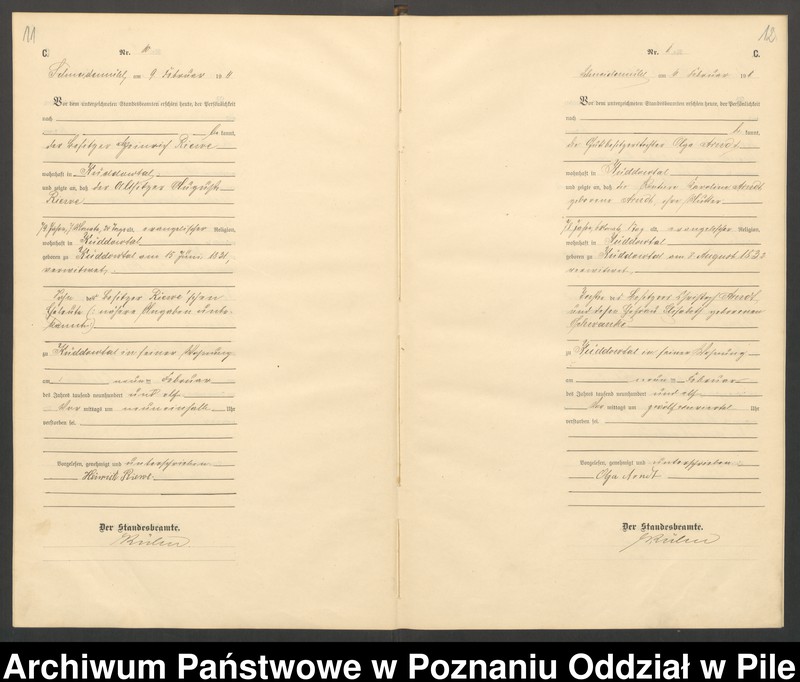 11
C.
Nr.
Schneidemühl, am 9. Februar 19 11.
Vor dem unterzeichneten Standesbeamten erschien heute, der Persönlichkeit
nach
be kannt,
der Besitzer Heinrich Riewe
wohnhaft in Küddowtal
und zeigte an, daß der Altsitzer August
Riewe
79 Jahre, 7 Monate, Tage alt, evangelischer Religion,
wohnhaft in Küddowtal
geboren zu Küddowtal am Juni 1831,
verwitwet,
Sohn der Besitzer Riewe'schen
Eheleute (: nähere Angaben unbe-
kannt :)
zu Küddowtal in seiner Wohnung
am neun Februar
des Jahres tausend neunhundert und elf
Vor mittags um neuneinhalb Uhr
verstorben sei.
Vorgelesen, genehmigt und unterschrieben
Heinrich Riewe
Der Standesbeamte.
12
Nr.
C.
Schneidemühl, am Februar 19
Vor dem unterzeichneten Standesbeamten erschien heute, der Persönlichkeit
nach
be kannt,
die Gutsbesitzertochter Olga Arndt
wohnhaft in Küddowtal
und zeigte an, daß die Rentiere Karoline Arndt
geborene Arndt, ihre Mutter
Jahre, Monate, Tag alt, evangelischer Religion,
wohnhaft in Küddowtal
geboren zu Küddowtal am August
verwitwet,
Tochter des Besitzers Christoph Arndt
und dessen Ehefrau geborenen
Schwanke
zu Küddowtal in seiner Wohnung
am neun Februar
des Jahres tausend neunhundert und elf
Vor mittags um Uhr
verstorben sei.
Vorgelesen, genehmigt und unterschrieben
Olga Arndt
Der Standesbeamte.
Archiwum Państwowe w Poznaniu Oddział w Pile